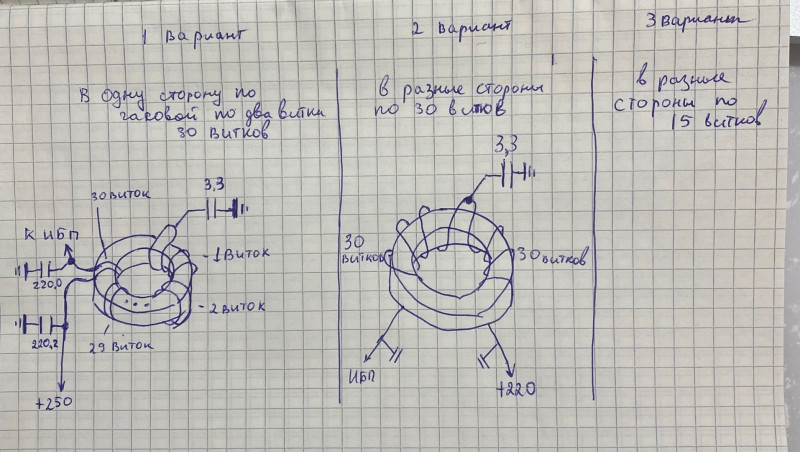 1 Вариант
2 Вариант
3 Вариант
В одну сторону по
часовой по два витки
30 витков
в разные стороны
по 30 витков
в разные
стороны по
15 витков
30 виток
3,3
К ИБП
- 1 виток
220,0
- 2 виток
220,2
29 виток
+250
3,3
30
витков
30 витков
ИБП
+220